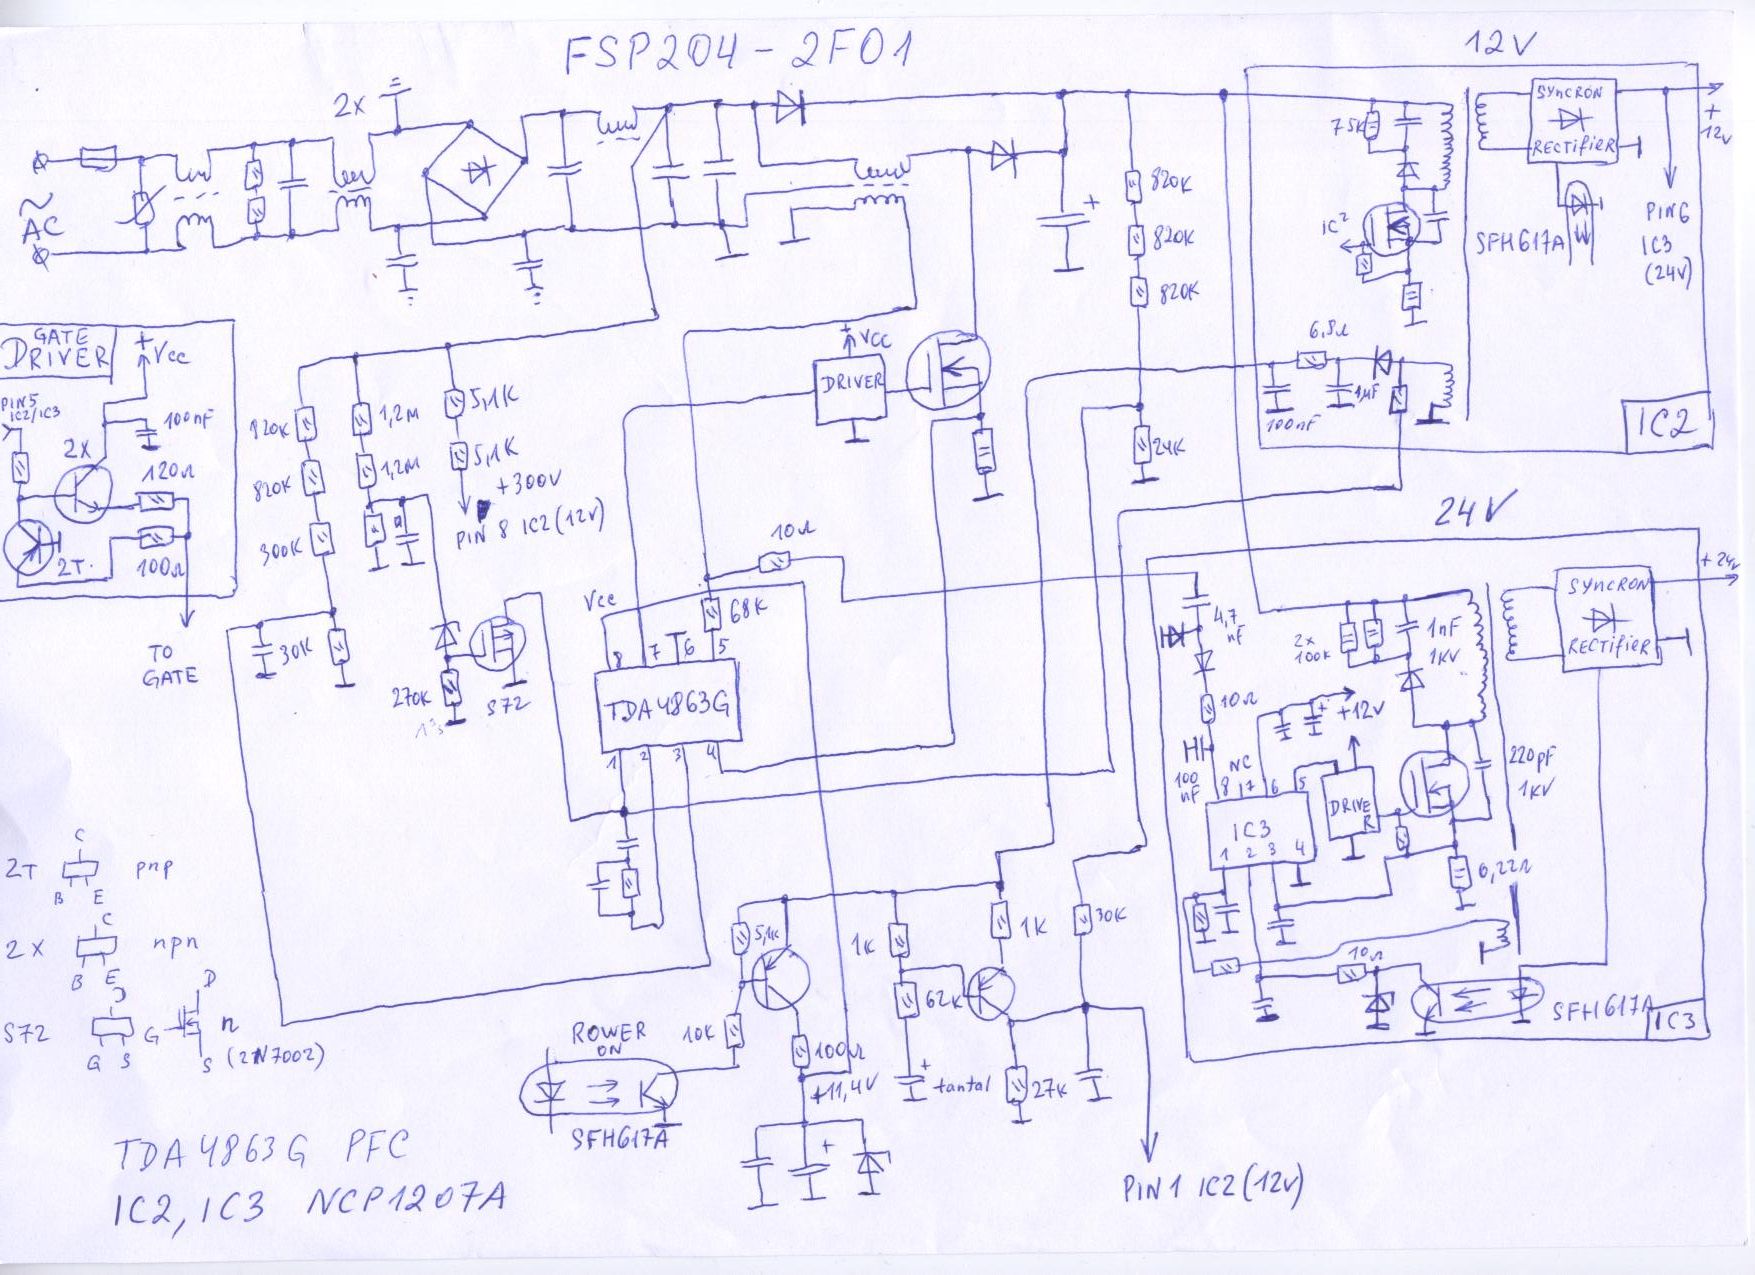 FSP204-2F01
12V
2x
~
AC
75K
SYNCRON
RECTIFIER
+
12V
IC2
SFH617A
PIN6
IC3
(24V)
820K
820K
820K
+
6,8Ω
1µF
100nF
IC2
24K
GATE
DRIVER
+
Vcc
PIN5
IC2/IC3
100nF
2X
120Ω
2T.
100Ω
TO
GATE
820K
820K
300K
30K
1,2M
1,2M
5,1K
5,1K
+300V
PIN 8 IC2(12V)
270K
S72
+
VCC
DRIVER
10Ω
Vcc
68K
8 7 6 5
TDA4863G
1 2 3 4
24V
+24V
SYNCRON
RECTIFIER
4,7
nF
2x
100K
1nF
1KV
10Ω
+
+12V
100
nF
NC
8 7 6 5
IC3
1 2 3 4
DRIVE
R
220pF
1KV
0,22Ω
10Ω
SFH617A
IC3
2T
C
B E
pnp
2X
C
B E
npn
S72
D
G S
G
D
S
n
(2N7002)
5,1K
10K
100Ω
+11,4V
+
ROWER
ON
SFH617A
1K
62K
+
tantal
1K
30K
27K
PIN1 IC2(12V)
TDA4863G PFC
IC2, IC3 NCP1207A